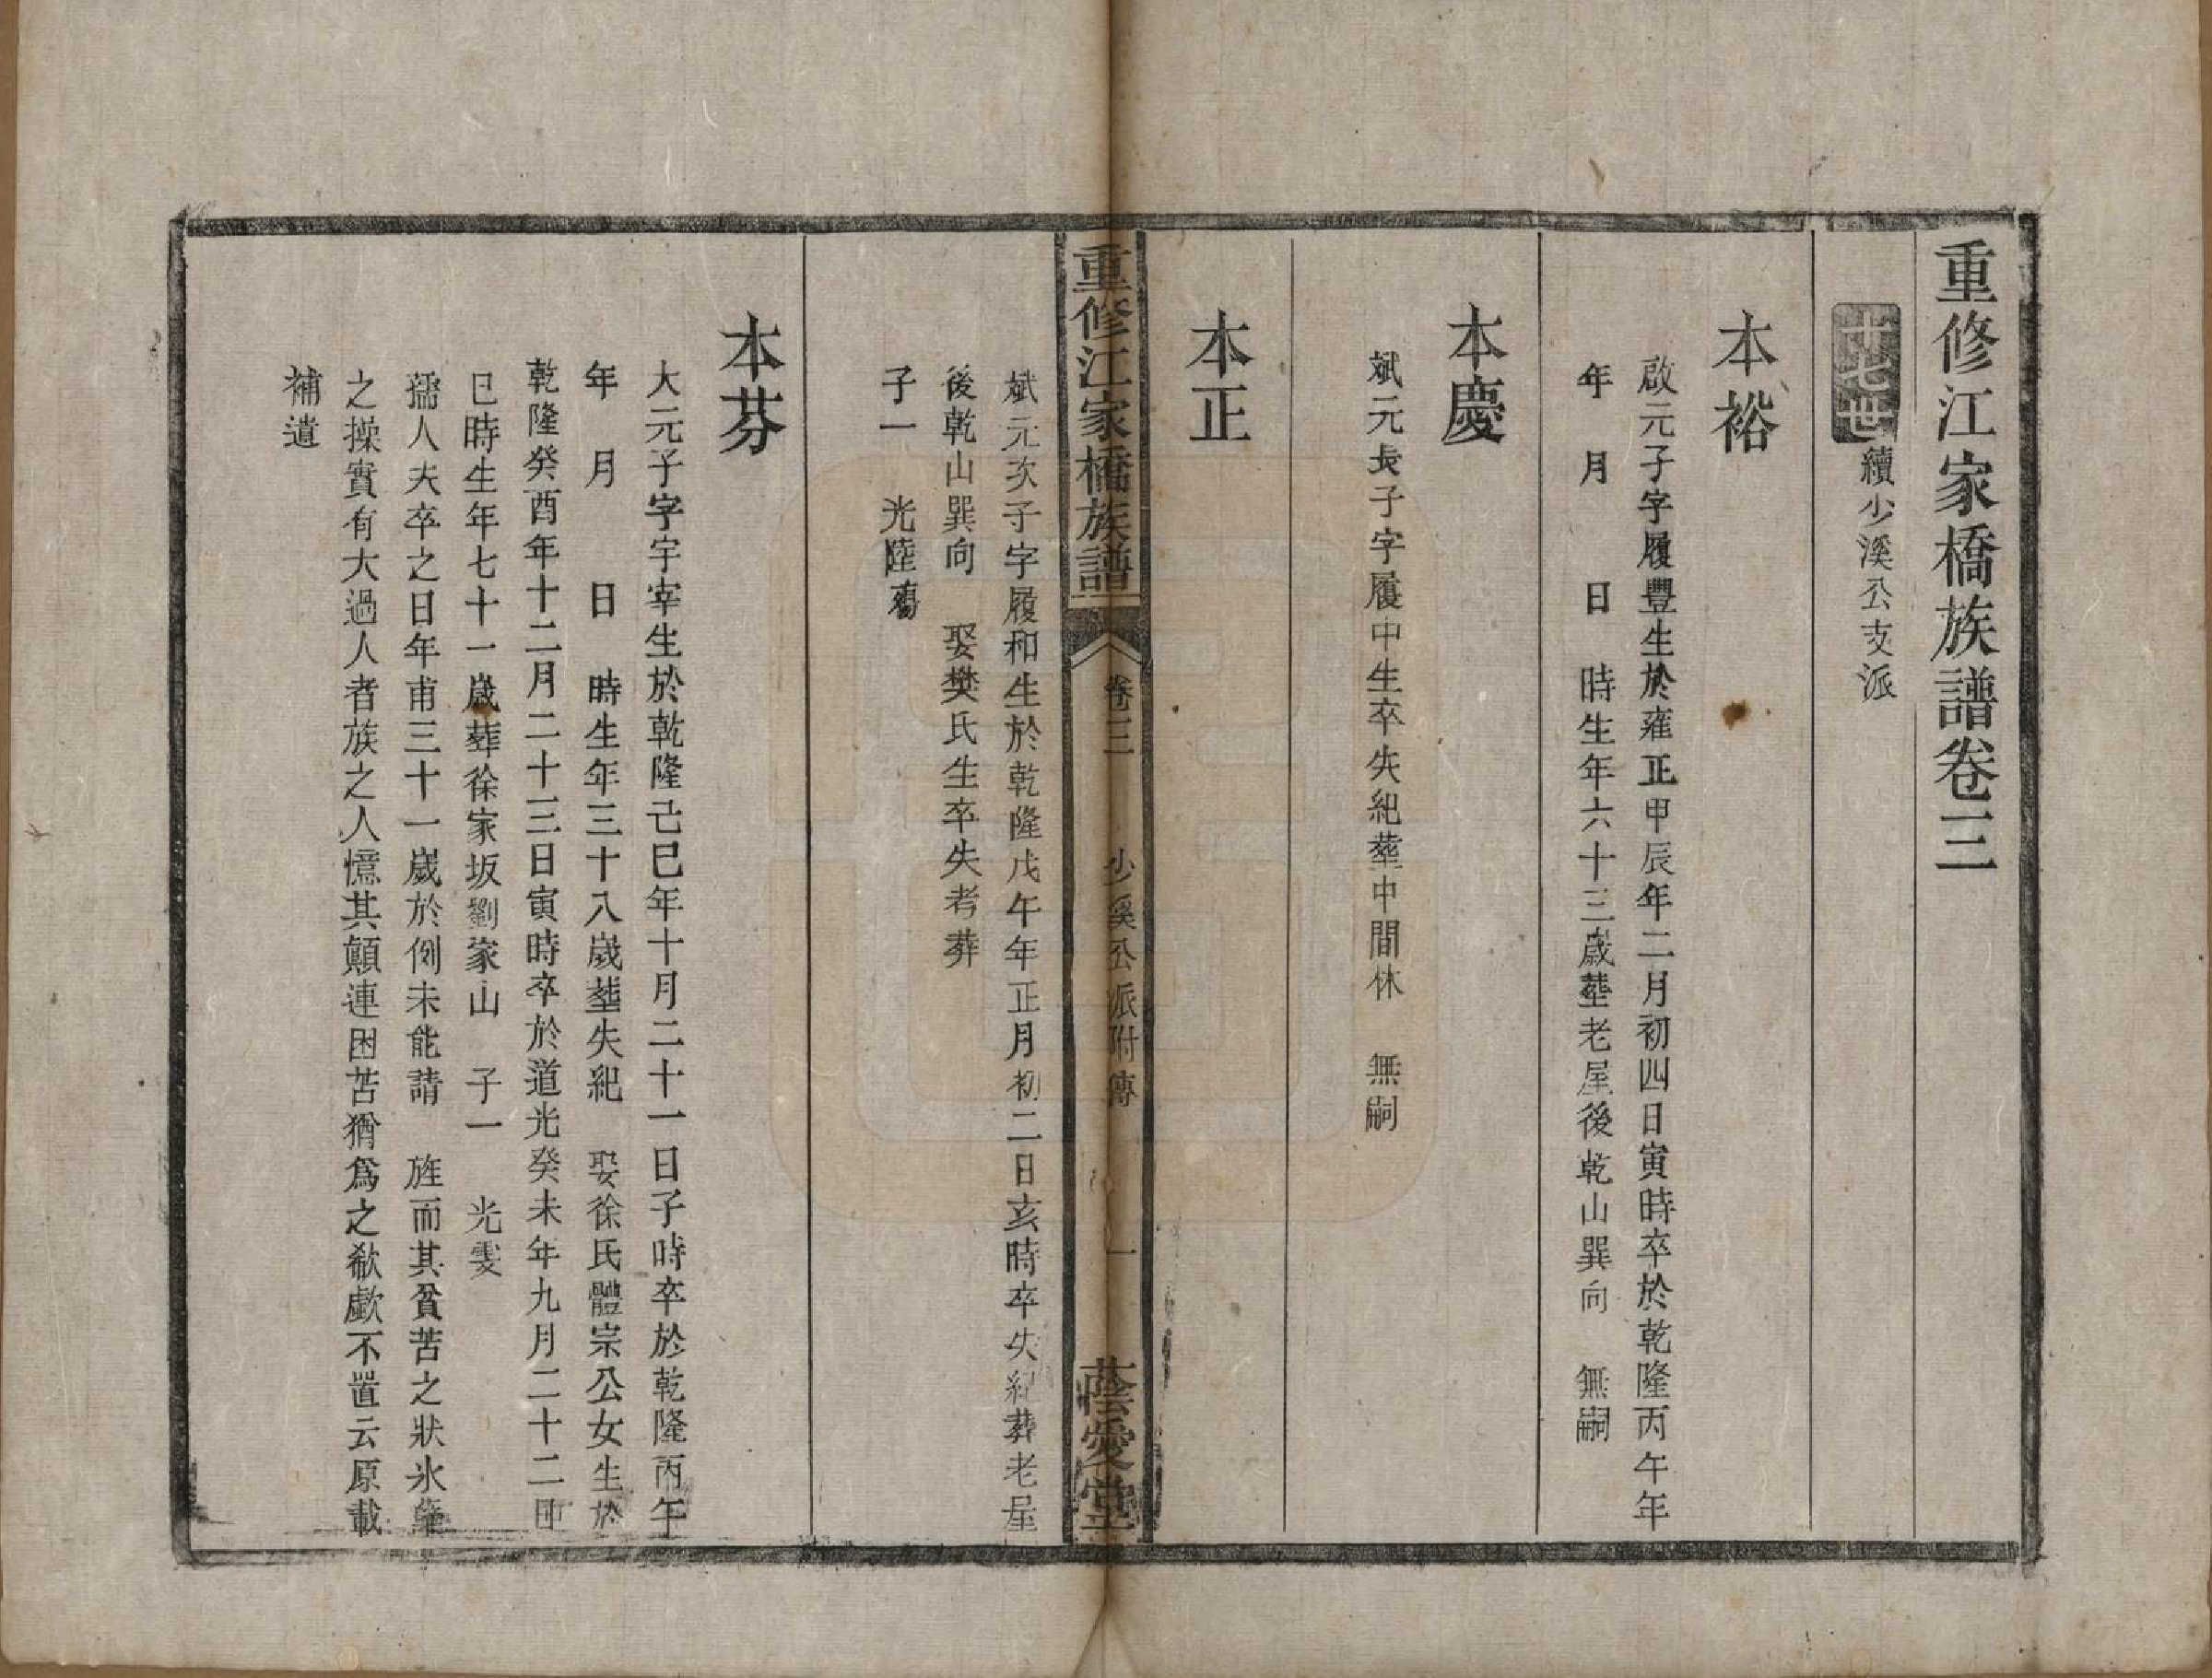 重修江家橋族譜卷三
十七世 續少溪公支派
本裕
啟元子字履豐生於雍正甲辰年二月初四日寅時卒於乾隆丙午年
年 月 日 時生年六十三歲塟老屋後乾山巽向 無嗣
本慶
斌元長子字履中生卒失紀塟中間林 無嗣
本正
重修江家橋族譜 卷三 少溪公派附傳 一 蔭愛堂
斌元次子字履和生於乾隆戊午年正月初二日亥時卒失紀葬老屋
後乾山巽向 娶樊氏生卒失考葬
子一 光陸殤
本芬
大元子字宇宰生於乾隆己巳年十月二十一日子時卒於乾隆丙午
年 月 日 時生年三十八歲塟失紀 娶徐氏體宗公女生於
乾隆癸酉年十二月二十三日寅時卒於道光癸未年九月二十二日
巳時生年七十一歲葬徐家坂劉家山 子一 光雯
孺人夫卒之日年甫三十一歲於例未能請 旌而其貧苦之狀氷蘗
之操實有大過人者族之人憶其顛連困苦猶爲之欷歔不置云原載
補遺